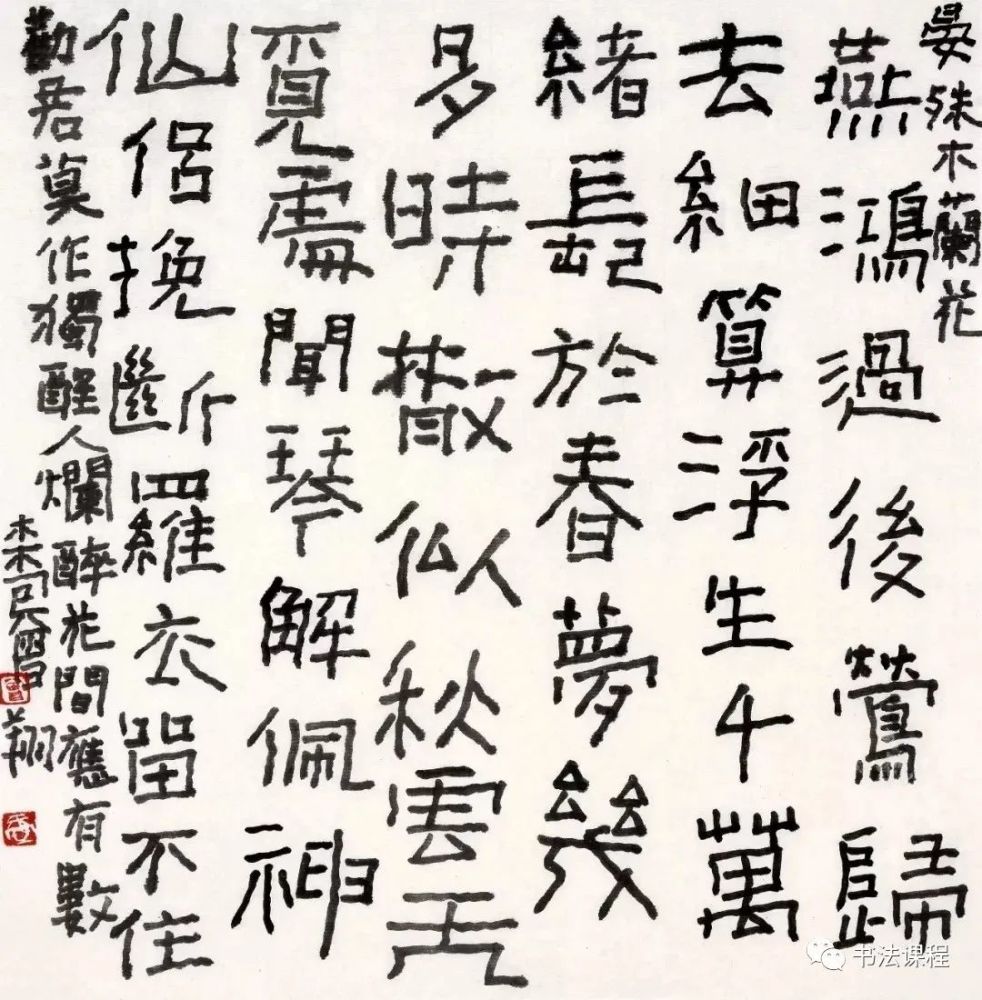 晏殊木蘭花
燕鴻過後鶯歸
去細算浮生千萬
緒長於春夢幾
多時散似秋雲无
覓處聞琴解佩神
仙侶挽斷羅衣留不住
勸君莫作獨醒人爛醉花間應有數
曾翔
书法课程